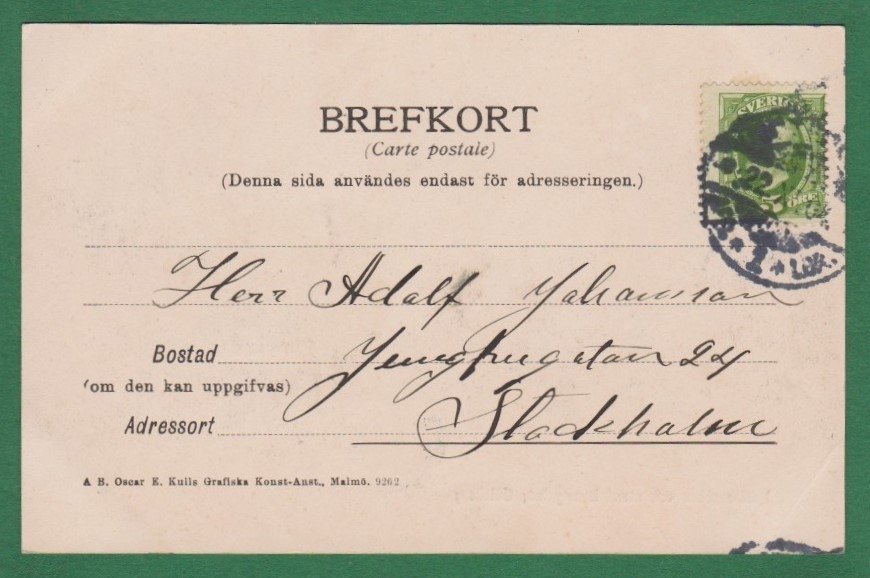 BREFKORT
(Carte postale)
(Denna sida användes endast för adresseringen.)
SVERI
ÖRE
22
1
Herr Adolf Johansson
Bostad Jungfrugatan 24
(om den kan uppgifvas)
Adressort Stockholm
A B. Oscar E. Kulls Grafiska Konst-Anst., Malmö. 9262